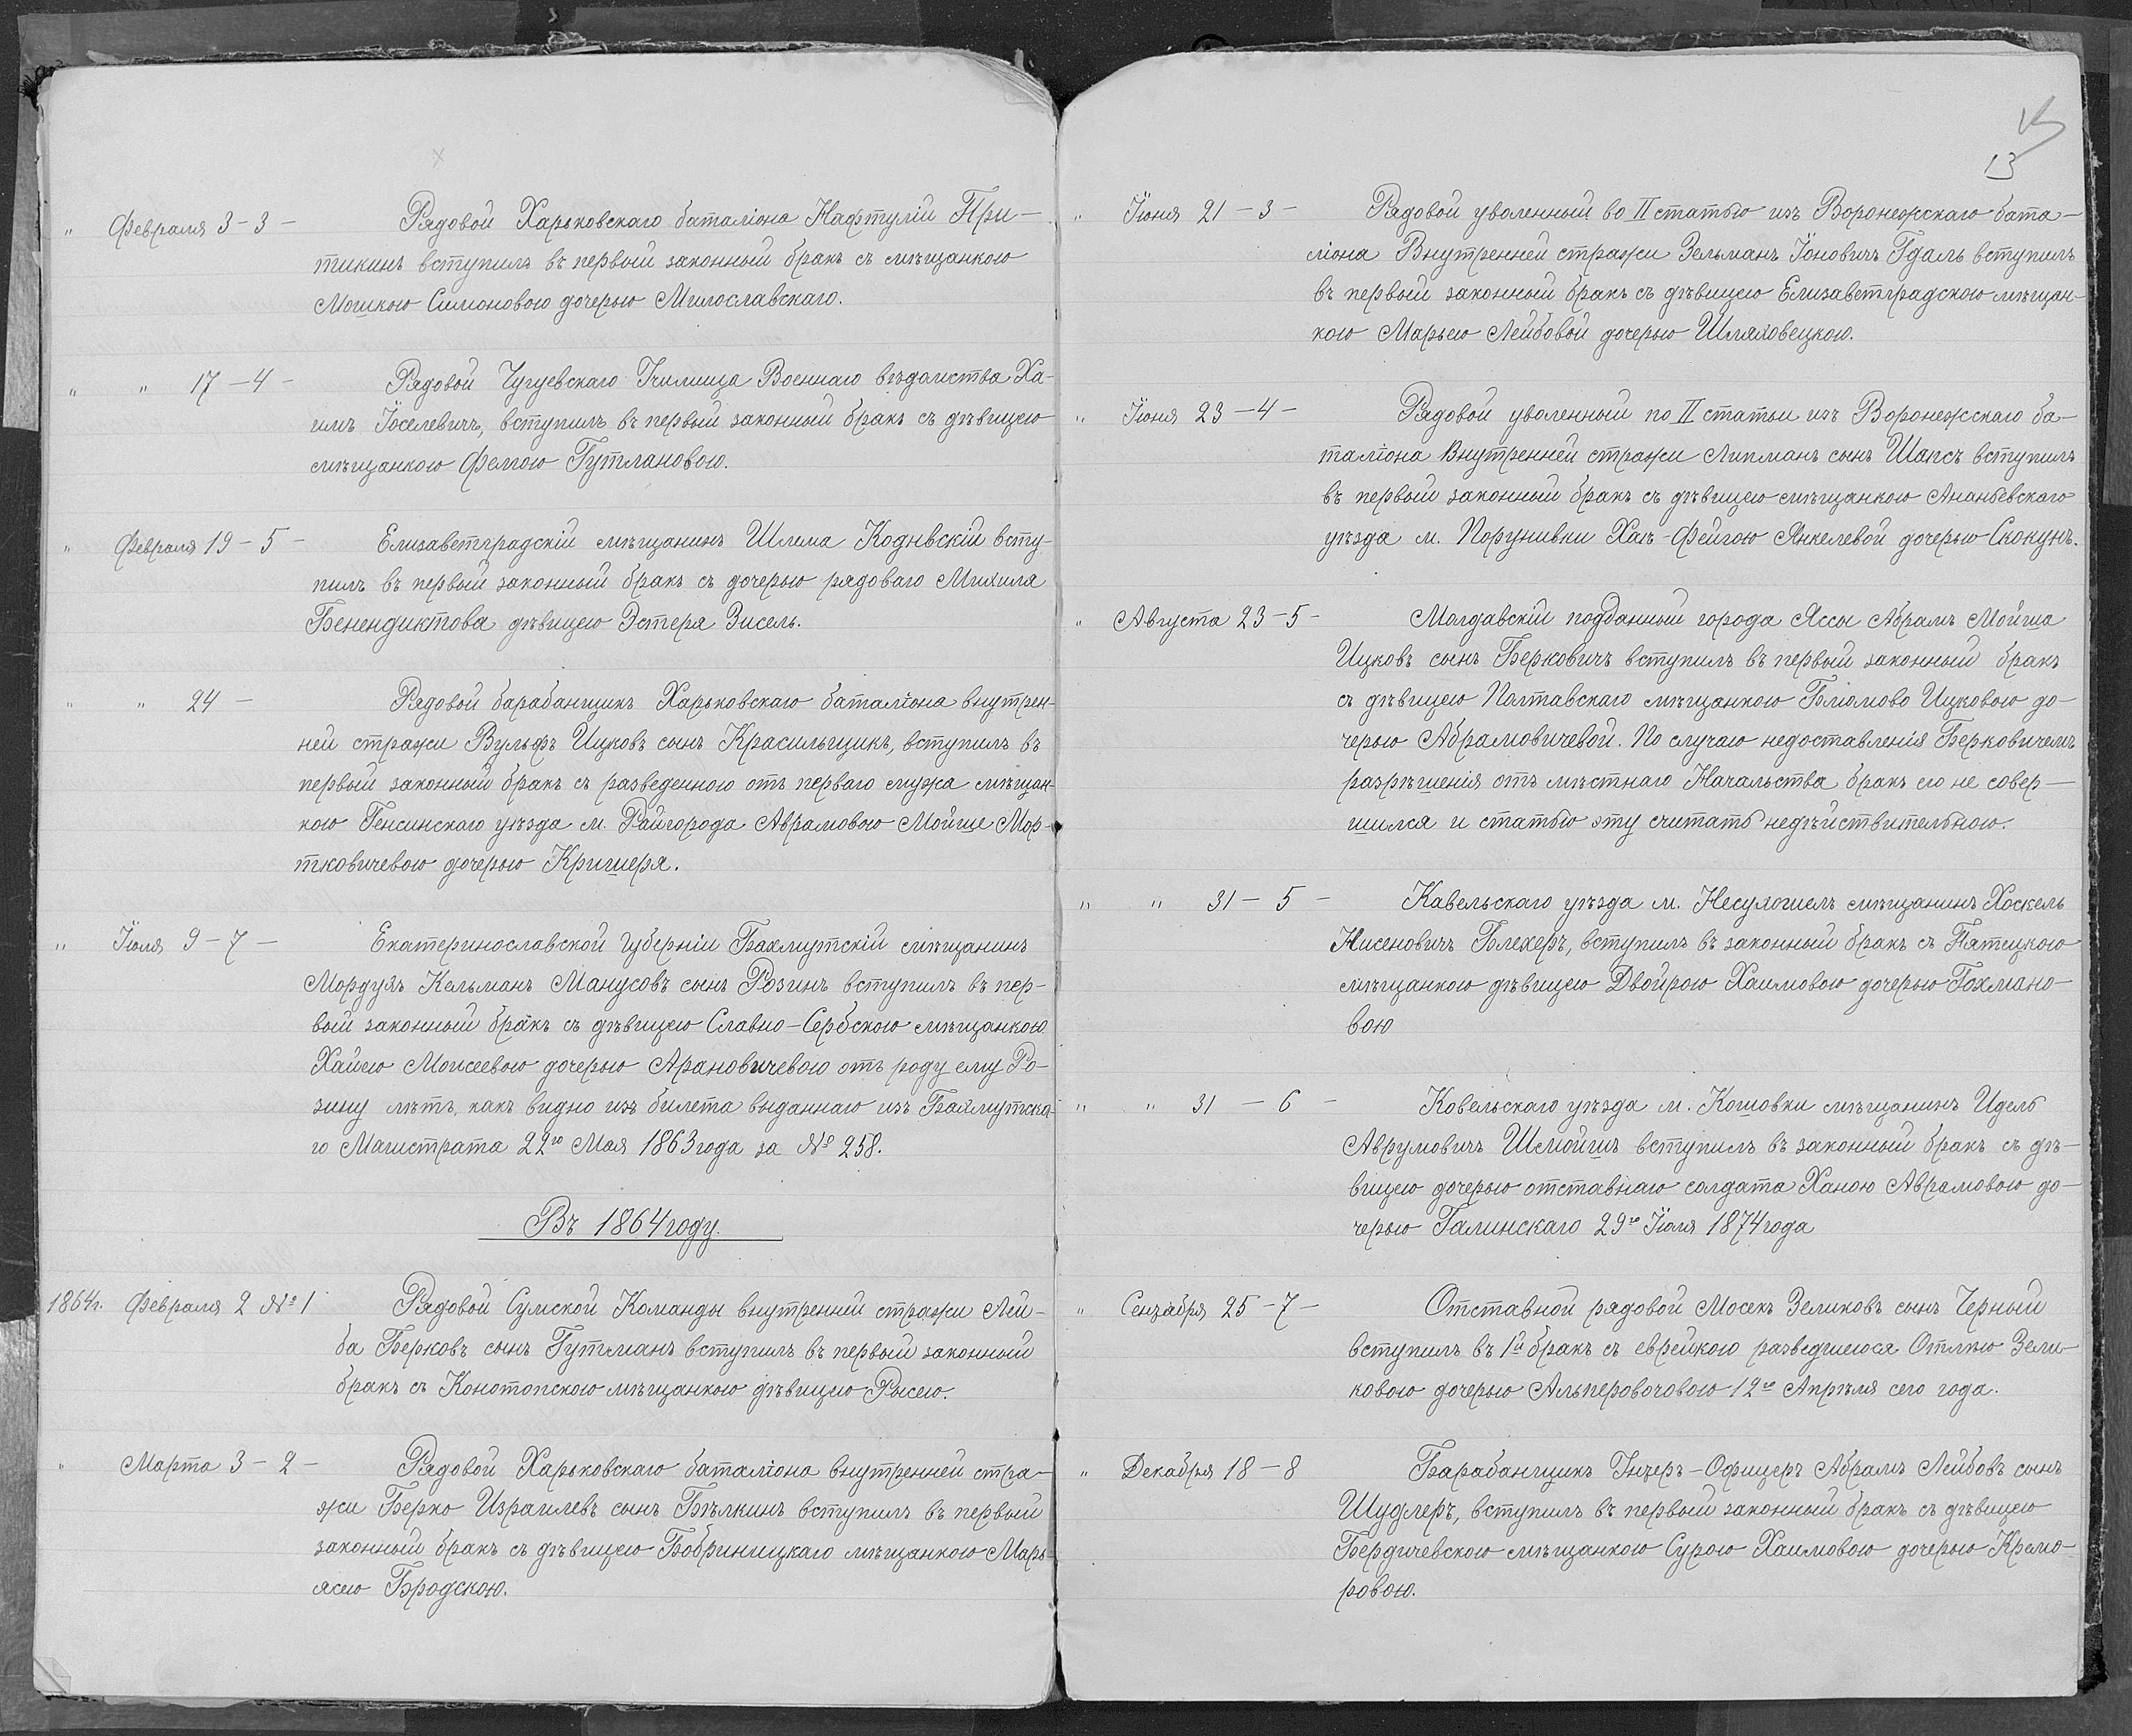 " Февраля 3 - 3 - Рядовой Харьковскаго баталіона Нафтулій При-
тикинъ вступилъ въ первый законный бракъ съ мѣщанкою
Мошкою Симоновою дочерью Милославскаго.
" " 17 - 4 - Рядовой Чугуевскаго Училища Военнаго вѣдомства Ха-
имъ Іоселевичъ, вступилъ въ первый законный бракъ съ дѣвицею
мѣщанкою Фелгою Гутлановою.
" Февраля 19 - 5 - Елизаветградскій мѣщанинъ Шлема Коднвскій всту-
пилъ въ первый законный бракъ съ дочерью рядоваго Михиля
Бенендиктова дѣвицею Эстеря Зисель.
" " 24 - Рядовой барабанщикъ Харьковскаго баталіона внутрен-
ней стражи Вульфъ Ицковъ сынъ Красильщикъ, вступилъ въ
первый законный бракъ съ разведенною отъ перваго мужа мѣщан-
кою Генсинскаго уѣзда м. Райгорода Аврамовою Мойше Мор-
тковичевою дочерью Кришеря.
" Іюля 9 - 7 - Екатеринославской губерніи Бахмутскій мѣщанинъ
Мордухъ Кельманъ Манусовъ сынъ Розинъ вступилъ въ пер-
вый законный бракъ съ дѣвицею Славно-Сербскою мѣщанкою
Хаиею Моисеевою дочерью Арановичевою отъ роду ему Ро-
зину лѣтъ, какъ видно изъ билета выданнаго изъ Бахмутска-
го Магистрата 22го Мая 1863 года за № 258.
Въ 1864 году.
1864г. Февраля 2 № 1 Рядовой Сумской Команды внутренней стражи Лей-
ба Берковъ сынъ Гутманъ вступилъ въ первый законный
бракъ съ Конотопскою мѣщанкою дѣвицею Рысею.
" Марта 3 - 2 - Рядовой Харьковскаго баталіона внутренней стра-
жи Берко Израилевъ сынъ Бѣлкинъ вступилъ въ первый
законный бракъ съ дѣвицею Бобриницкаго мѣщанкою Марь-
ясею Бродскою.
13
" Іюня 21 - 3 - Рядовой уволенный во II статью изъ Воронежскаго бата-
ліона Внутренней стражи Зельманъ Іоновичъ Гдаль вступилъ
въ первый законный бракъ съ дѣвицею Елизаветградскою мѣщан-
кою Марьею Лейбовой дочерью Шляховецкою.
" Іюня 23 - 4 - Рядовой уволенный по II статьи изъ Воронежскаго ба-
таліона Внутренней стражи Липманъ сынъ Шапсъ вступилъ
въ первый законный бракъ съ дѣвицею мѣщанкою Ананьевскаго
уѣзда м. Порунивки Хаѣ-Фейгою Янкелевой дочерью Скокунъ.
" Августа 23 - 5 - Молдавскій подданный города Яссы Абрамъ Мойша
Ицковъ сынъ Берковичъ вступилъ въ первый законный бракъ
съ дѣвицею Полтавскаго мѣщанкою Блюмово Ицковою до-
черью Абрамовичевой. По случаю недоставленія Берковичемъ
разрѣшенія отъ мѣстнаго Начальства бракъ его не совер-
шился и статью эту считать недѣйствительною.
" " 31 - 5 - Кавельскаго уѣзда м. Несухошемъ мѣщанинъ Хоскель
Нисеновичъ Блехеръ, вступилъ въ законный бракъ съ Пятецкою
мѣщанкою дѣвицею Двойрою Хаимовою дочерью Гохмано-
вою
" " 31 - 6 - Ковельскаго уѣзда м. Кошовки мѣщанинъ Идель
Аврумовичъ Шемойшъ вступилъ въ законный бракъ съ дѣ-
вицею дочерью отставнаго солдата Ханою Аврамовою до-
черью Галинскаго 29го Іюля 1874 года
" Сентября 25 - 7 - Отставной рядовой Мосекъ Зеликовъ сынъ Черный
вступилъ въ 1й бракъ съ еврейкою разведшеюся Отлѣю Зели-
ковою дочерью Альперовочовою 12го Апрѣля сего года.
" Декабря 18 - 8 Барабанщикъ Унтеръ-Офицеръ Абрамъ Лейбовъ сынъ
Шудлеръ, вступилъ въ первый законный бракъ съ дѣвицею
Бердичевскою мѣщанкою Сурою Хаимовою дочерью Кремо-
ровою.